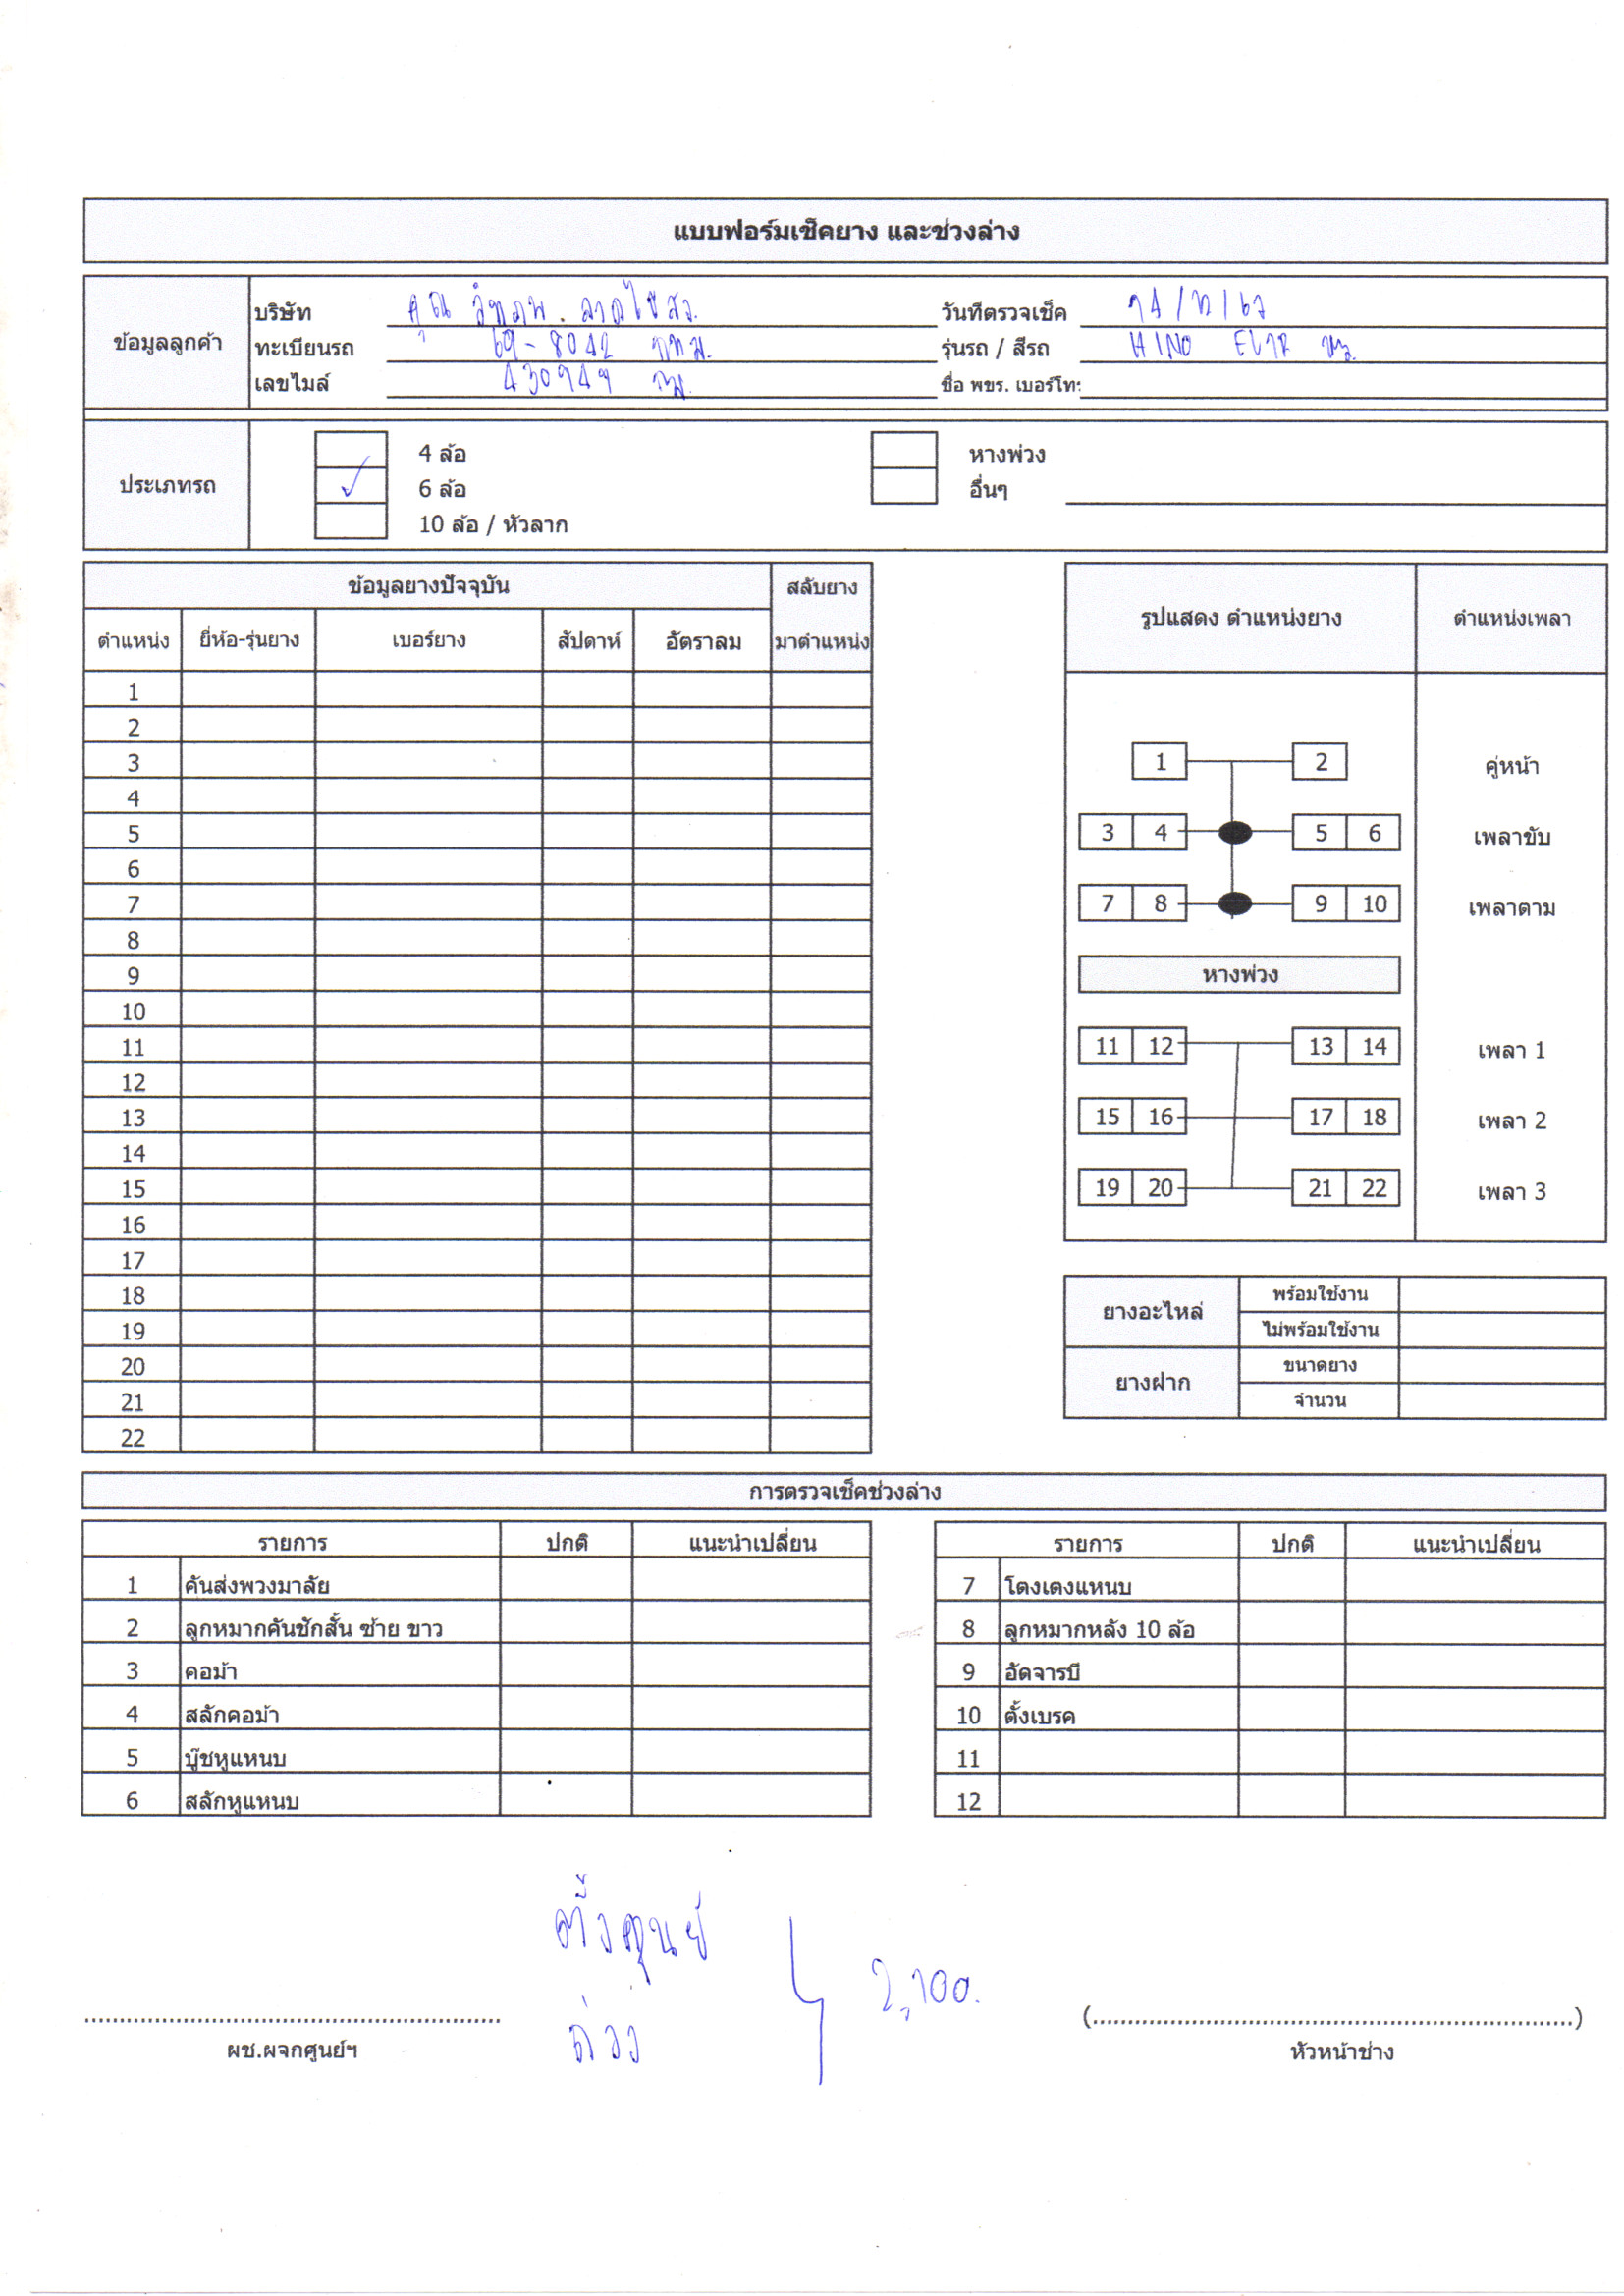 แบบฟอร์มเช็คยาง และช่วงล่าง
ข้อมูลลูกค้า
บริษัท คุณ
วันที่ตรวจเช็ค
ทะเบียนรถ 69-8042 กทม.
รุ่นรถ / สีรถ HINO
เลขไมล์ 430949 กม.
ชื่อ พขร. เบอร์โทร
ประเภทรถ
4 ล้อ
หางพ่วง
6 ล้อ
อื่นๆ
10 ล้อ / หัวลาก
ข้อมูลยางปัจจุบัน สลับยาง
ตำแหน่ง ยี่ห้อ-รุ่นยาง เบอร์ยาง สัปดาห์ อัตราลม มาตำแหน่ง
1
2
3
4
5
6
7
8
9
10
11
12
13
14
15
16
17
18
19
20
21
22
รูปแสดง ตำแหน่งยาง ตำแหน่งเพลา
1 2 คู่หน้า
3 4 5 6 เพลาขับ
7 8 9 10 เพลาตาม
หางพ่วง
11 12 13 14 เพลา 1
15 16 17 18 เพลา 2
19 20 21 22 เพลา 3
ยางอะไหล่
พร้อมใช้งาน
ไม่พร้อมใช้งาน
ยางฝาก
ขนาดยาง
จำนวน
การตรวจเช็คช่วงล่าง
รายการ ปกติ แนะนำเปลี่ยน
1 คันส่งพวงมาลัย
2 ลูกหมากคันชักสั้น ซ้าย ขาว
3 คอม้า
4 สลักคอม้า
5 บู๊ชหูแหนบ
6 สลักหูแหนบ
รายการ ปกติ แนะนำเปลี่ยน
7 โตงเตงแหนบ
8 ลูกหมากหลัง 10 ล้อ
9 อัดจารบี
10 ตั้งเบรค
11
12
ตั้งศูนย์
ถ่วง
2,100.
ผช.ผจกศูนย์ฯ
(..........)
หัวหน้าช่าง